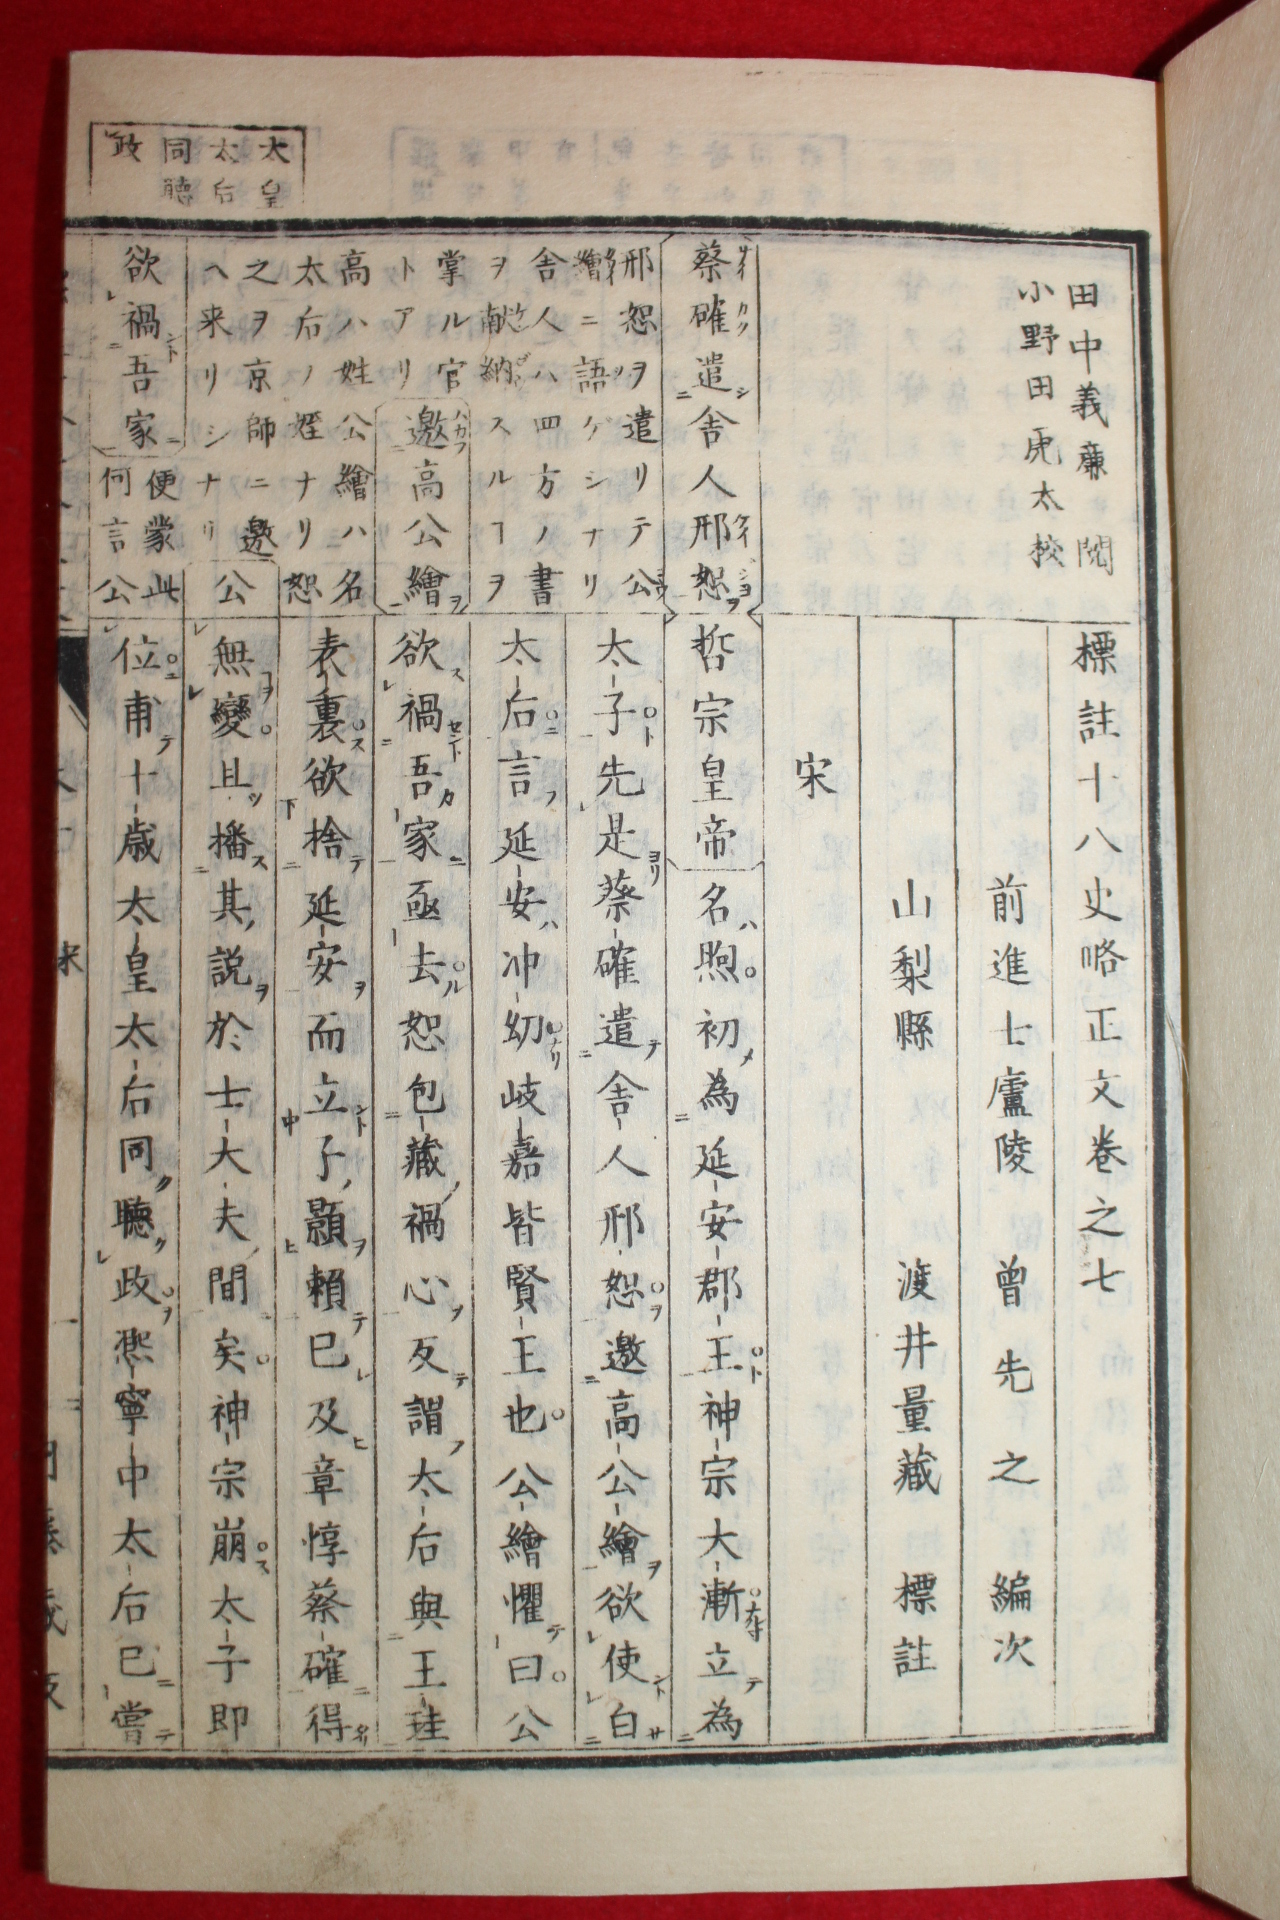 標註十八史略正文巻之七
前進士廬陵 曾先之 編次
山梨縣 渡井量藏 標註
宋
哲宗皇帝名ハ煦初メ為延安郡王神宗大漸立テ為
太子先是蔡確遣テ舎人邢恕ヲ邀高公繪ヲ欲使白
太后言フ延安ハ冲幼岐嘉皆賢王也公繪懼テ曰公
欲禍吾カ家亟去恕包藏禍心ヲ反テ謂フ太后與王珪
表裏欲捨テ延安ヲ而立子顥ヲ賴テ已及ヒ章惇蔡確得
無變且ツ播ス其ノ説ヲ於士大夫ノ間矣神宗崩太子即
位甫テ十歳太皇太后同ク聽政熙寧中太后已ニ嘗テ
田中義廉閲
小野田虎太校
蔡確遣舎人邢恕ヲ
邢恕ヲ遣リテ公
繪ニ語ゲシナリ
舎人ハ四方ノ書
ヲ献納スルヿヲ
掌ル官
トアリ
邀高公繪ヲ
高ハ姓公繪ハ名
太后ノ姪ナリ恕
之ヲ京師ニ邀
ヘ来リシナリ
公
欲禍吾家
便蒙此
何言公
太皇
太后
同聽
政